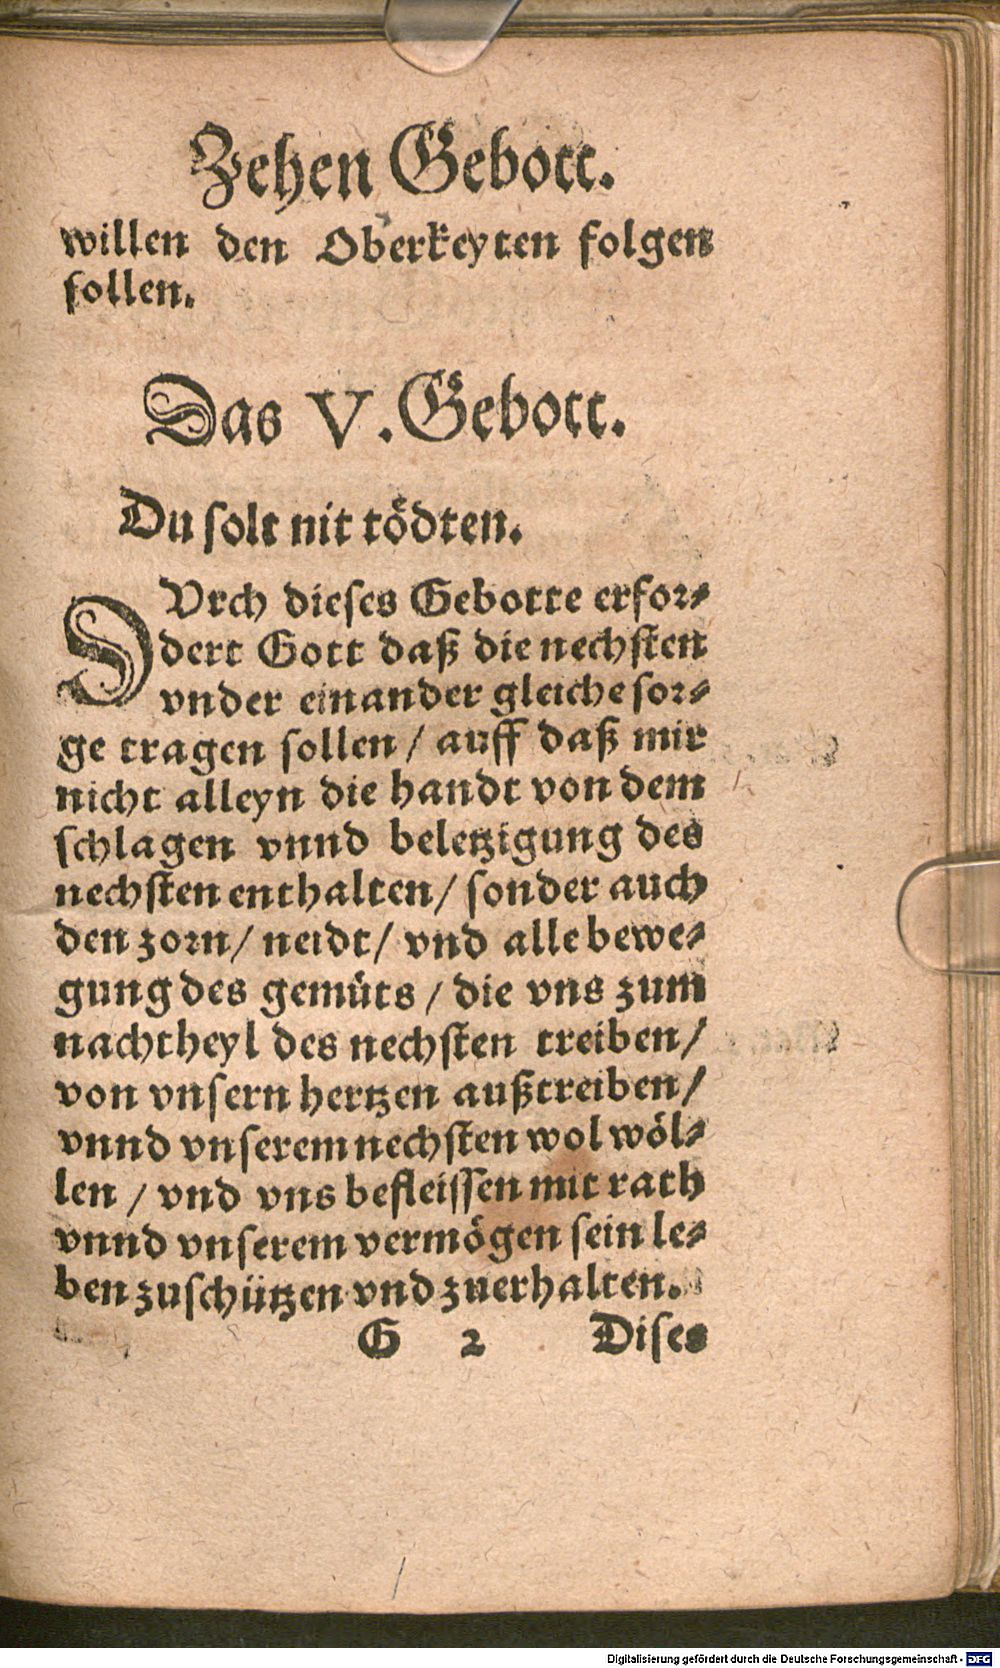 Zehen Gebott.
willen den Oberkeyten folgen
sollen.
Das V. Gebott.
Du solt nit tödten.
DVrch dieses Gebotte erfor⸗
dert Gott daß die nechsten
vnder einander gleiche sor⸗
ge tragen sollen / auff daß mir
nicht alleyn die handt von dem
schlagen vnnd beletzigung des
nechsten enthalten / sonder auch
den zorn / neidt / vnd alle bewe⸗
gung des gemüts / die vns zum
nachtheyl des nechsten treiben /
von vnsern hertzen außtreiben /
vnnd vnserem nechsten wol wöl⸗
len / vnd vns befleissen mit rath
vnnd vnserem vermögen sein le⸗
ben zuschützen vnd zuerhalten.
G 2 Dises
Digitalisierung gefördert durch die Deutsche Forschungsgemeinschaft - DFG